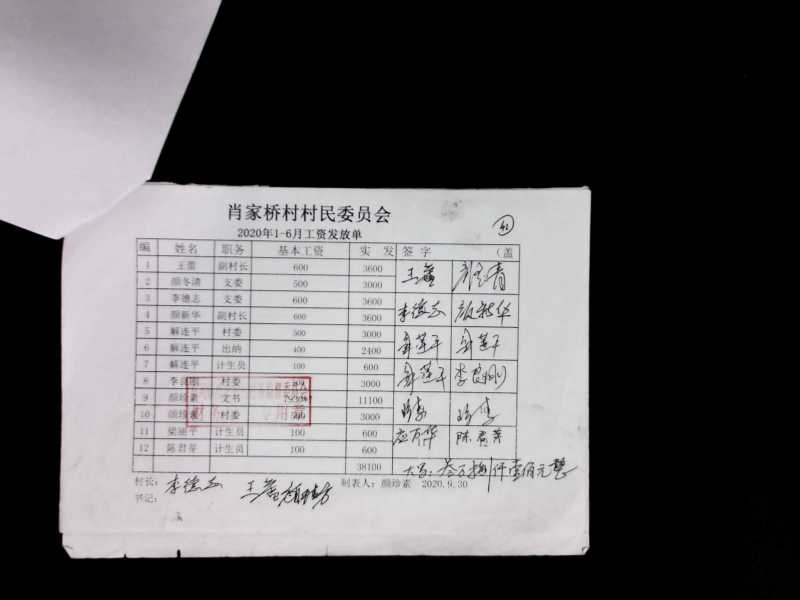 肖家桥村村民委员会
41
2020年1-6月工资发放单
编 姓名 职务 基本工资 实 发 签 字 (盖
1 王蕾 副村长 600 3600 王蕾
2 颜冬清 支委 500 3000 颜冬清
3 李德志 支委 600 3600 李德志
4 颜新华 副村长 600 3600 颜新华
5 解连平 村委 500 3000 解莲平
6 解连平 出纳 400 2400 解莲平
7 解连平 计生员 100 600 解莲平
8 李良刚 村委 3000 李良刚
9 颜珍素 文书 11100
10 颜珍素 村委 3000
11 计生员 100 600
12 陈君芬 计生员 100 600 陈君芬
38100 大写：叁万捌仟壹佰元整
村长： 李德志 王蕾 制表人：颜珍素 2020.9.30
书记：